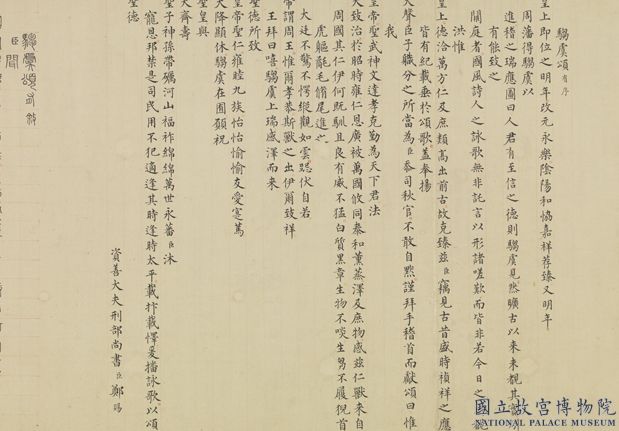 騶虞頌有序
皇上即位之明年改元永樂陰陽和協嘉祥荐臻又明年
周藩得騶虞以
進稽之瑞應圖曰人君有至信之德則騶虞見然曠古以来未覩其
有能致之
闕庭者國風詩人之詠歌無非託言以形諸嗟歎而皆非若今日之
洪惟
皇上德洽萬方仁及庶類高出前古故克臻茲臣竊見古昔盛時禎祥之應
皆有紀載垂於頌歌蓋奉揚
大聲臣子職分之所當為臣忝司秋官不敢自黙謹拜手稽首而獻頌曰惟
我
皇帝聖武神文達孝克勤為天下君法
天致治於昭時雍仁恩廣被萬國攸同泰和薰蒸澤及庶物感茲仁獸来自
周國其仁伊何既馴且良有威不猛白質黒章生物不啖生芻不履猊首
虎軀毛脩尾進之
大廷不驚不愕縱觀如雲踞伏自若
帝謂周王惟爾孝恭斯獸之出伊爾致祥
王拜曰嘻騶虞上瑞感澤而来
皇帝聖仁雍睦九族怡怡愉愉友愛寔篤
聖德所致
天降顯休騶虞在囿願祝
聖皇與
天齊壽
聖子神孫帶礪河山福祚綿綿萬世永蕃臣沐
寵恩邦禁是司民用不犯適逢其時逢時太平載抃載懌爰播詠歌以頌
聖德
資善大夫刑部尚書臣鄭賜
騶虞頌有
臣聞
國立故宮博物院
NATIONAL PALACE MUSEUM